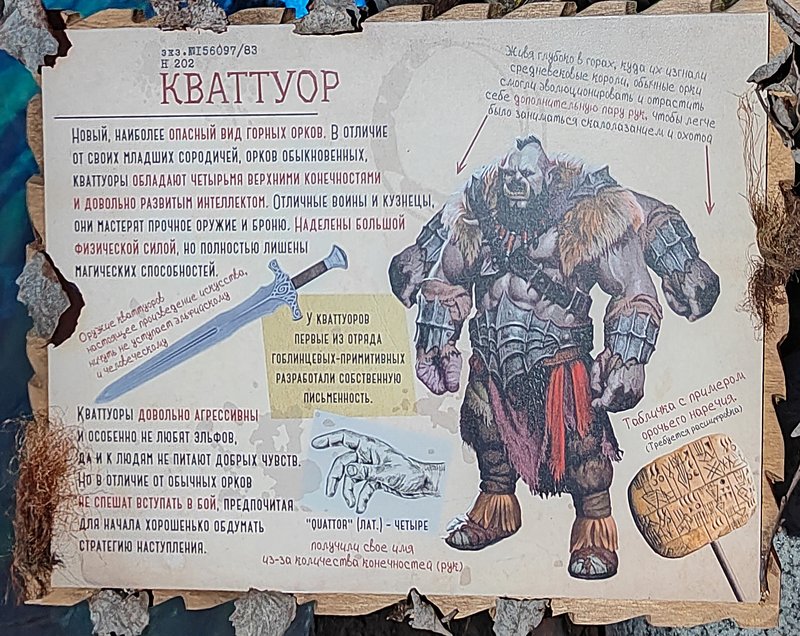 экз.№I56097/83
Н 202
КВАТТУОР
Живя глубоко в горах, куда их изгнали
средневековые короли, обычные орки
смогли эволюционировать и отрастить
себе дополнительную пару рук, чтобы легче
было заниматься скалолазанием и охотой
Новый, наиболее опасный вид горных орков. В отличие
от своих младших сородичей, орков обыкновенных,
кваттуоры обладают четырьмя верхними конечностями
и довольно развитым интеллектом. Отличные воины и кузнецы,
они мастерят прочное оружие и броню. Наделены большой
физической силой, но полностью лишены
магических способностей.
Оружие кваттуоров
настоящее произведение искусства,
ничуть не уступает эльфийскому
и человеческому
У кваттуоров
первые из отряда
гоблинцевых-примитивных
разработали собственную
письменность.
Кваттуоры довольно агрессивны
и особенно не любят эльфов,
да и к людям не питают добрых чувств.
Но в отличие от обычных орков
не спешат вступать в бой, предпочитая
для начала хорошенько обдумать
стратегию наступления.
"QUATTOR" (лат.) - четыре
получили свое имя
из-за количества конечностей (рук)
Табличка с примером
орочьего наречия.
(Требуется расшифровка)